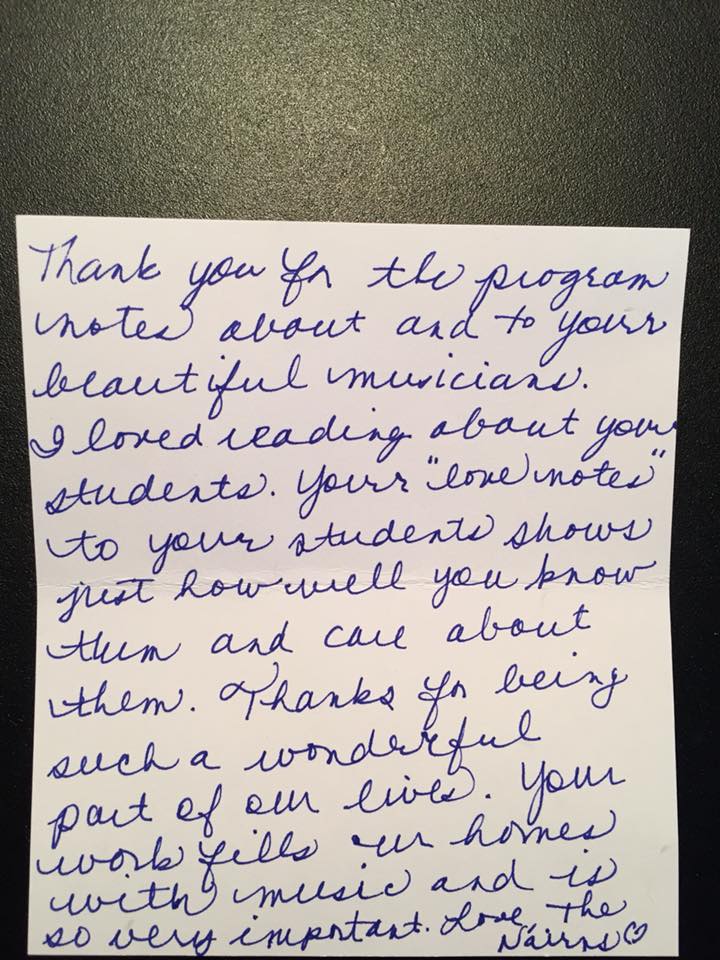 Thank you for the program
notes about and to your
beautiful musicians.
I loved reading about your
students. Your "love notes"
to your students shows
just how well you know
them and care about
them. Thanks for being
such a wonderful
part of our lives. Your
work fills our homes
with music and is
so very important. Love, The
Nairns♡